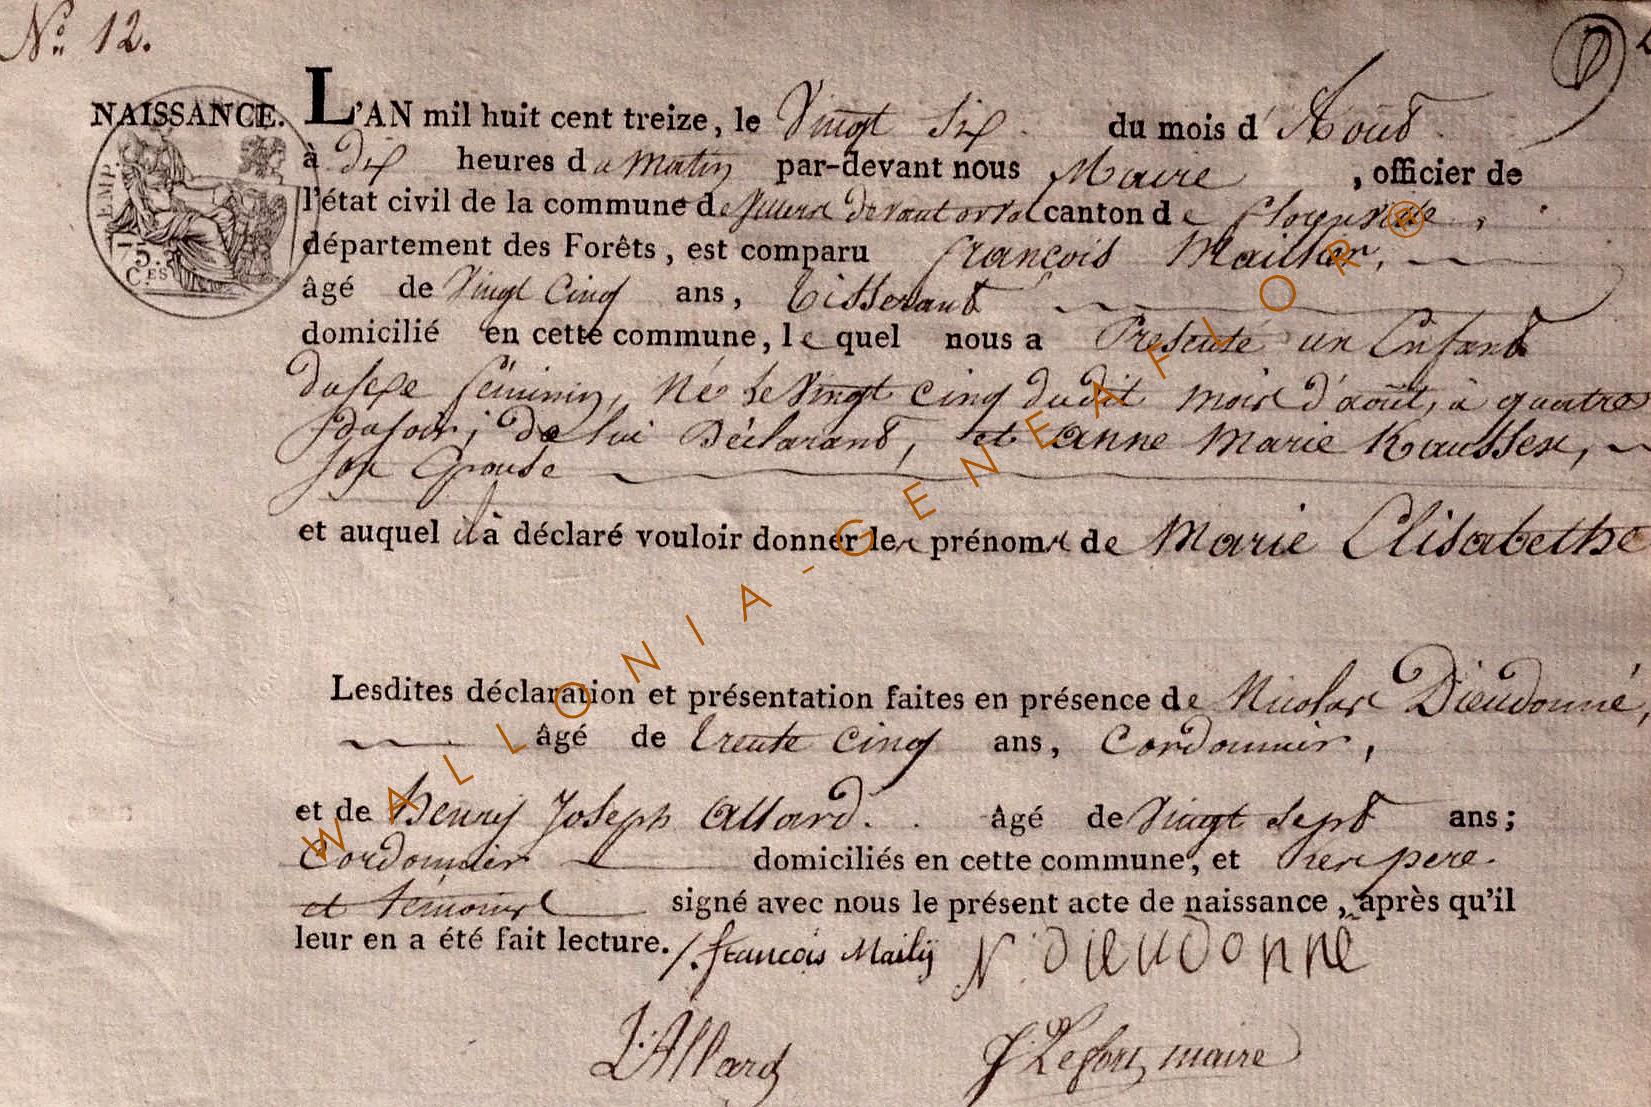 N.º 12.
NAISSANCE.
L'AN mil huit cent treize, le Vingt Six du mois d'Août
à dix heures du Matin par-devant nous Maire, officier de
l'état civil de la commune de Villers devant orval canton de
département des Forêts, est comparu françois,
âgé de Vingt Cinq ans, tisserant
domicilié en cette commune, lequel nous a Presenté un Enfant
du sexe féminin, Né le Vingt cinq dudit mois d'août, à quatres
du soir; de lui Déclarant, et anne Marie,
son Epouse
et auquel il à déclaré vouloir donner les prénoms de Marie Elisabethe
Lesdites déclaration et présentation faites en présence de Nicolas Dieudonné,
âgé de trente cinq ans, Cordonnier,
et de henry Joseph allard. âgé de Vingt sept ans;
Cordonnier domiciliés en cette commune, et pere
et témoins signé avec nous le présent acte de naissance, après qu'il
leur en a été fait lecture. françois Mailij N Dieudonné
Allard maire
EMP.
75.
C.ES
WALLONIA-GENEAFLOR®